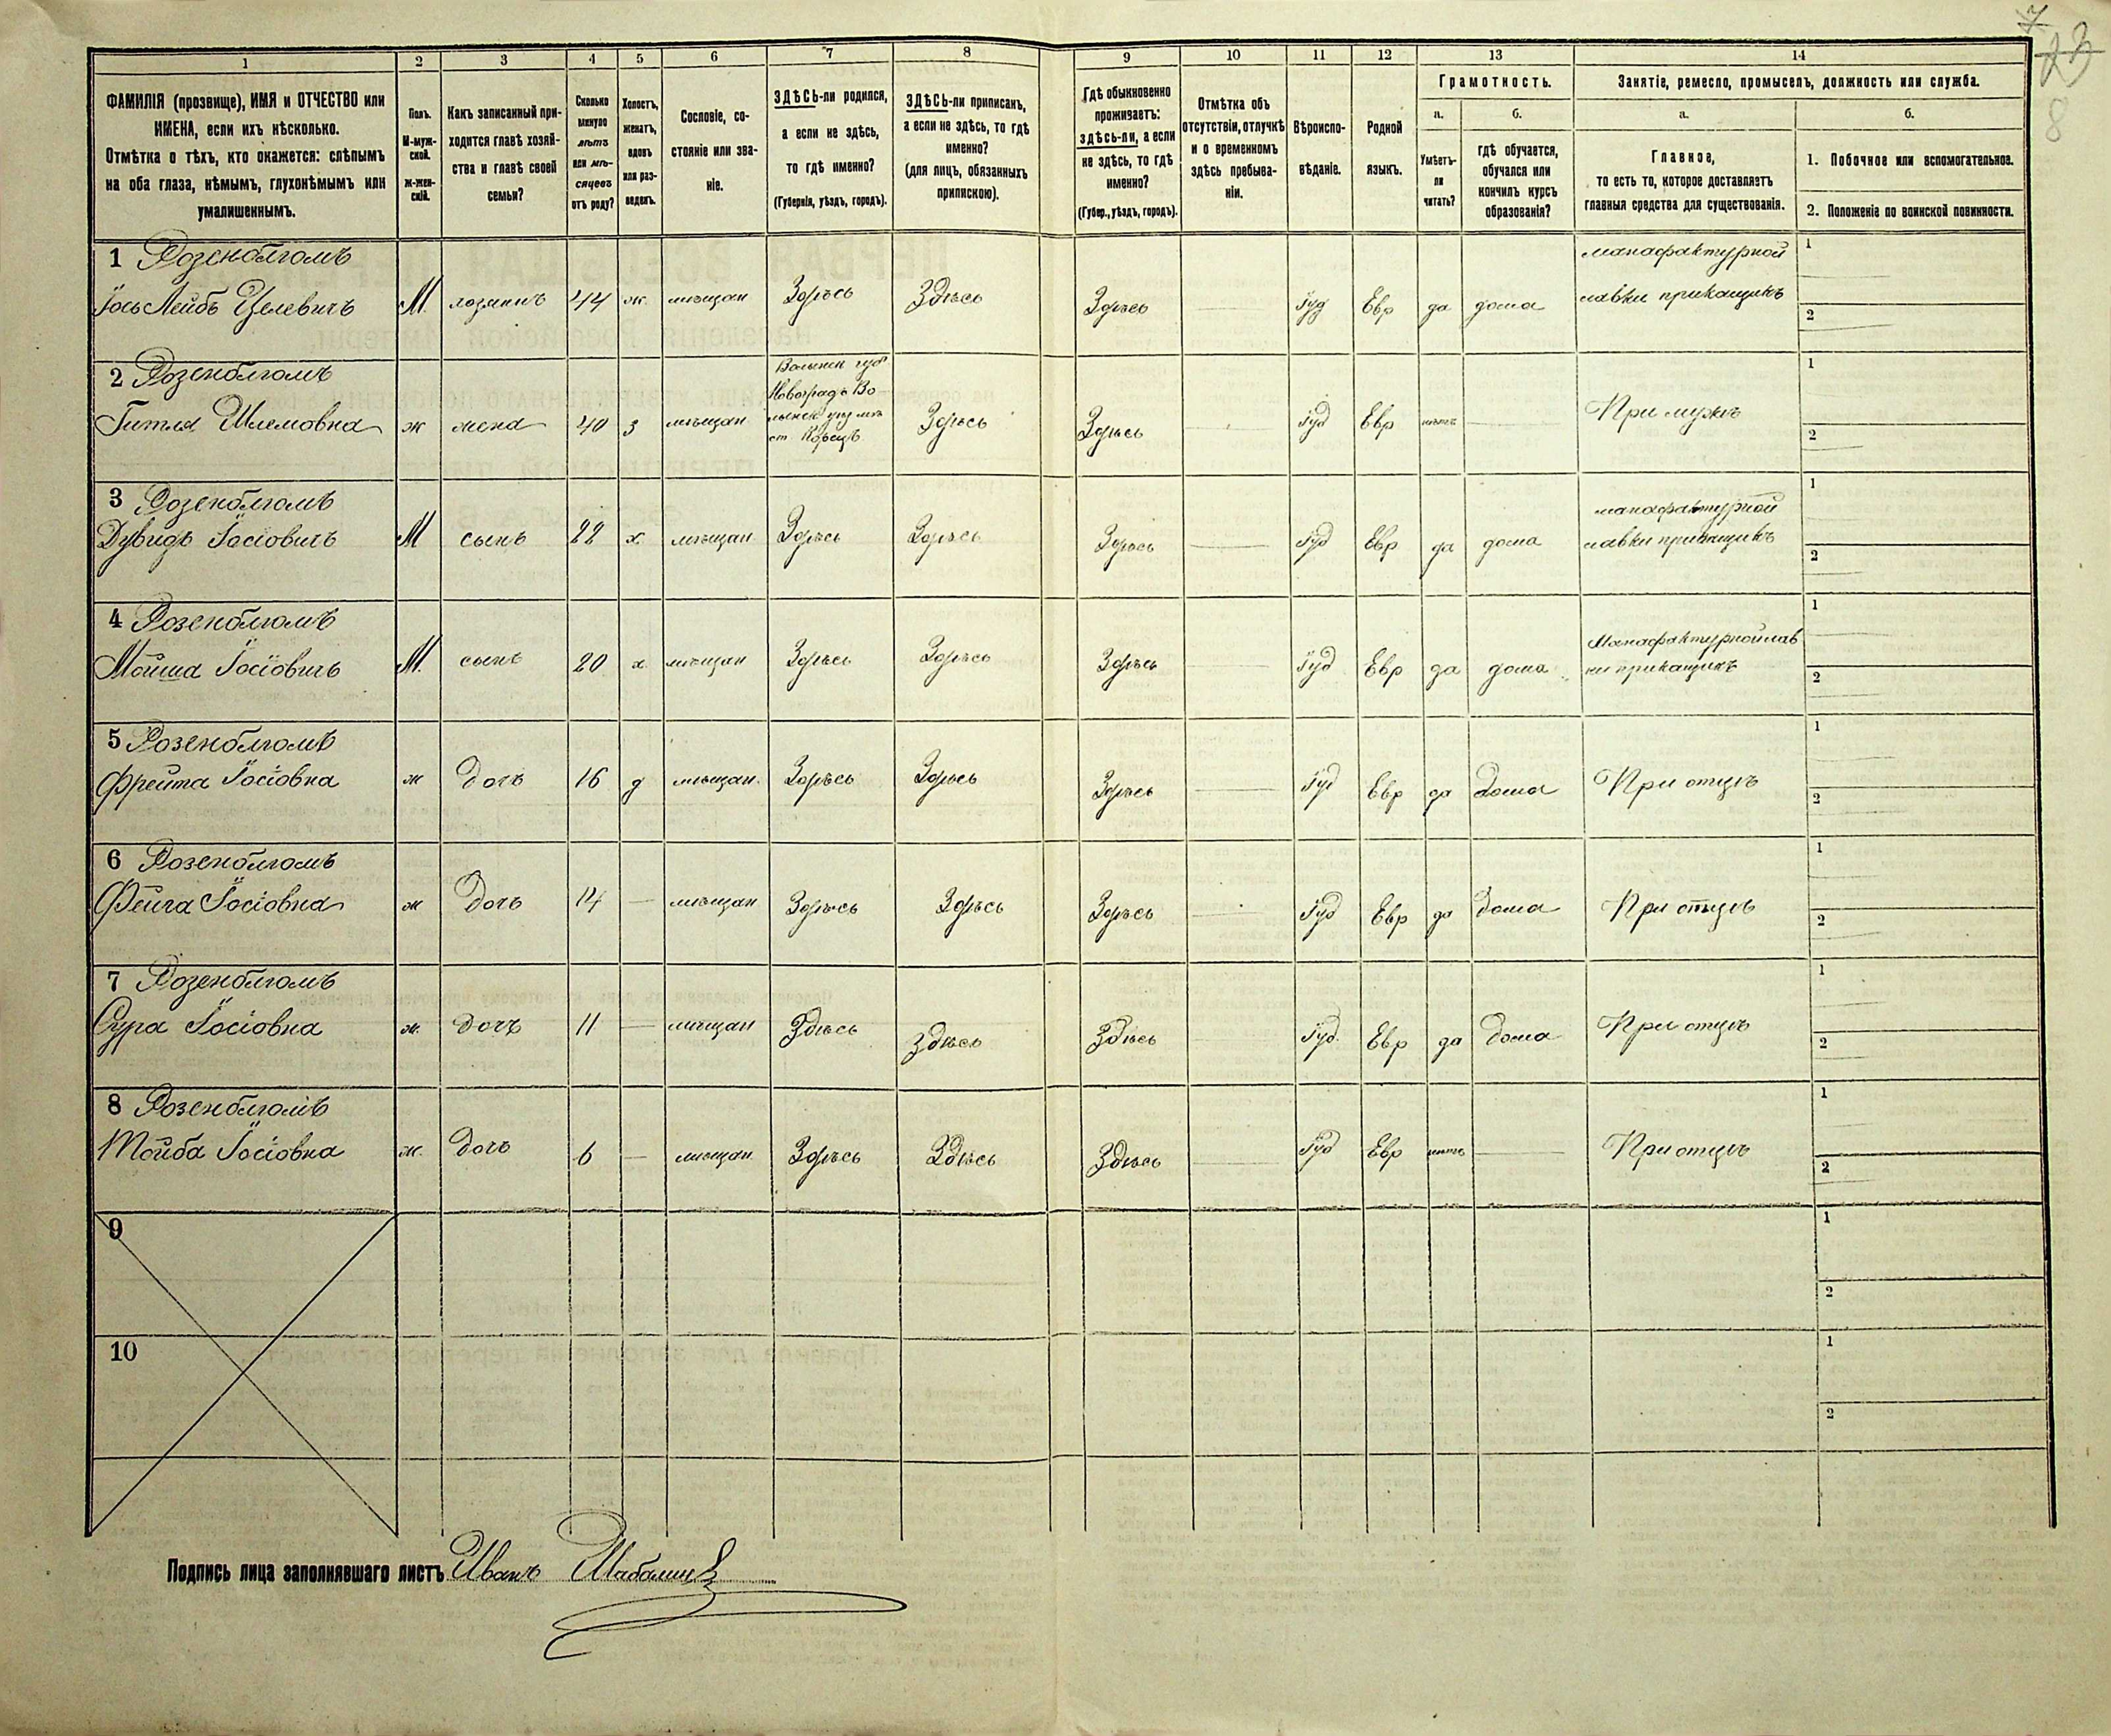 7
23
8
1
2
3
4
5
6
7
8
9
10
11
12
13
14
ФАМИЛІЯ (прозвище), ИМЯ и ОТЧЕСТВО или
ИМЕНА, если ихъ нѣсколько.
Отмѣтка о тѣхъ, кто окажется: слѣпымъ
на оба глаза, нѣмымъ, глухонѣмымъ или
умалишеннымъ.
Полъ.
М-муж-
ской.
ж-жен-
скій.
Какъ записанный при-
ходится главѣ хозяй-
ства и главѣ своей
семьи?
Сколько
минуло
лѣтъ
или мѣ-
сяцевъ
отъ роду?
Холостъ,
женатъ,
вдовъ
или раз-
веденъ.
Сословіе, со-
стояніе или зва-
ніе.
ЗДѢСЬ-ли родился,
а если не здѣсь,
то гдѣ именно?
(Губернія, уѣздъ, городъ).
ЗДѢСЬ-ли приписанъ,
а если не здѣсь, то гдѣ
именно?
(для лицъ, обязанныхъ
припискою).
Гдѣ обыкновенно
проживаетъ:
здѣсь-ли, а если
не здѣсь, то гдѣ
именно?
(Губер., уѣздъ, городъ).
Отмѣтка объ
отсутствіи, отлучкѣ
и о временномъ
здѣсь пребыва-
ніи.
Вѣроиспо-
вѣданіе.
Родной
языкъ.
Грамотность.
а.
Умѣетъ-
ли
читать?
б.
гдѣ обучается,
обучался или
кончилъ курсъ
образованія?
Занятіе, ремесло, промыселъ, должность или служба.
а.
Главное,
то есть то, которое доставляетъ
главныя средства для существованія.
б.
1. Побочное или вспомогательное.
2. Положеніе по воинской повинности.
1 Розенблюмъ
Іось Лейбъ Ицелевичъ М. хозяинъ 44 ж. мѣщан Здѣсь Здѣсь Здѣсь Іуд Евр да дома
манафактурной
лавки прикащикъ
1
2
2 Розенблюмъ
Гитля Шлемовна ж жена 40 з мѣщан
Волынск губ
Новоградъ Во
лынск уѣз мѣ
ст Корецъ
Здѣсь Здѣсь Іуд Евр нѣтъ При мужѣ
1
2
3 Розенблюмъ
Дувидъ Іосіовичъ М сынъ 22 х. мѣщан Здѣсь Здѣсь Здѣсь Іуд Евр да дома
манафактурной
лавки прикащикъ
1
2
4 Розенблюмъ
Мойша Іосіовичъ М. сынъ 20 х. мѣщан Здѣсь Здѣсь Здѣсь Іуд Евр да дома
Манафактурной лав
ки прикащикъ
1
2
5 Розенблюмъ
Фрейта Іосіовна ж Дочъ 16 д мѣщан. Здѣсь Здѣсь Здѣсь Іуд Евр да Дома При отцѣ
1
2
6 Розенблюмъ
Фейга Іосіовна ж Дочъ 14 — мѣщан Здѣсь Здѣсь Здѣсь Іуд Евр да Дома При отцѣ
1
2
7 Розенблюмъ
Сура Іосіовна ж. дочъ 11 — мѣщан Здѣсь Здѣсь Здѣсь Іуд. Евр да Дома При отцѣ
1
2
8 Розенблюмъ
Тойба Іосіовна ж. Дочъ 6 — мѣщан Здѣсь Здѣсь Здѣсь Іуд Евр нѣтъ При отцѣ
1
2
9
1
2
10
1
2
Подпись лица заполнявшаго листъ Иванъ